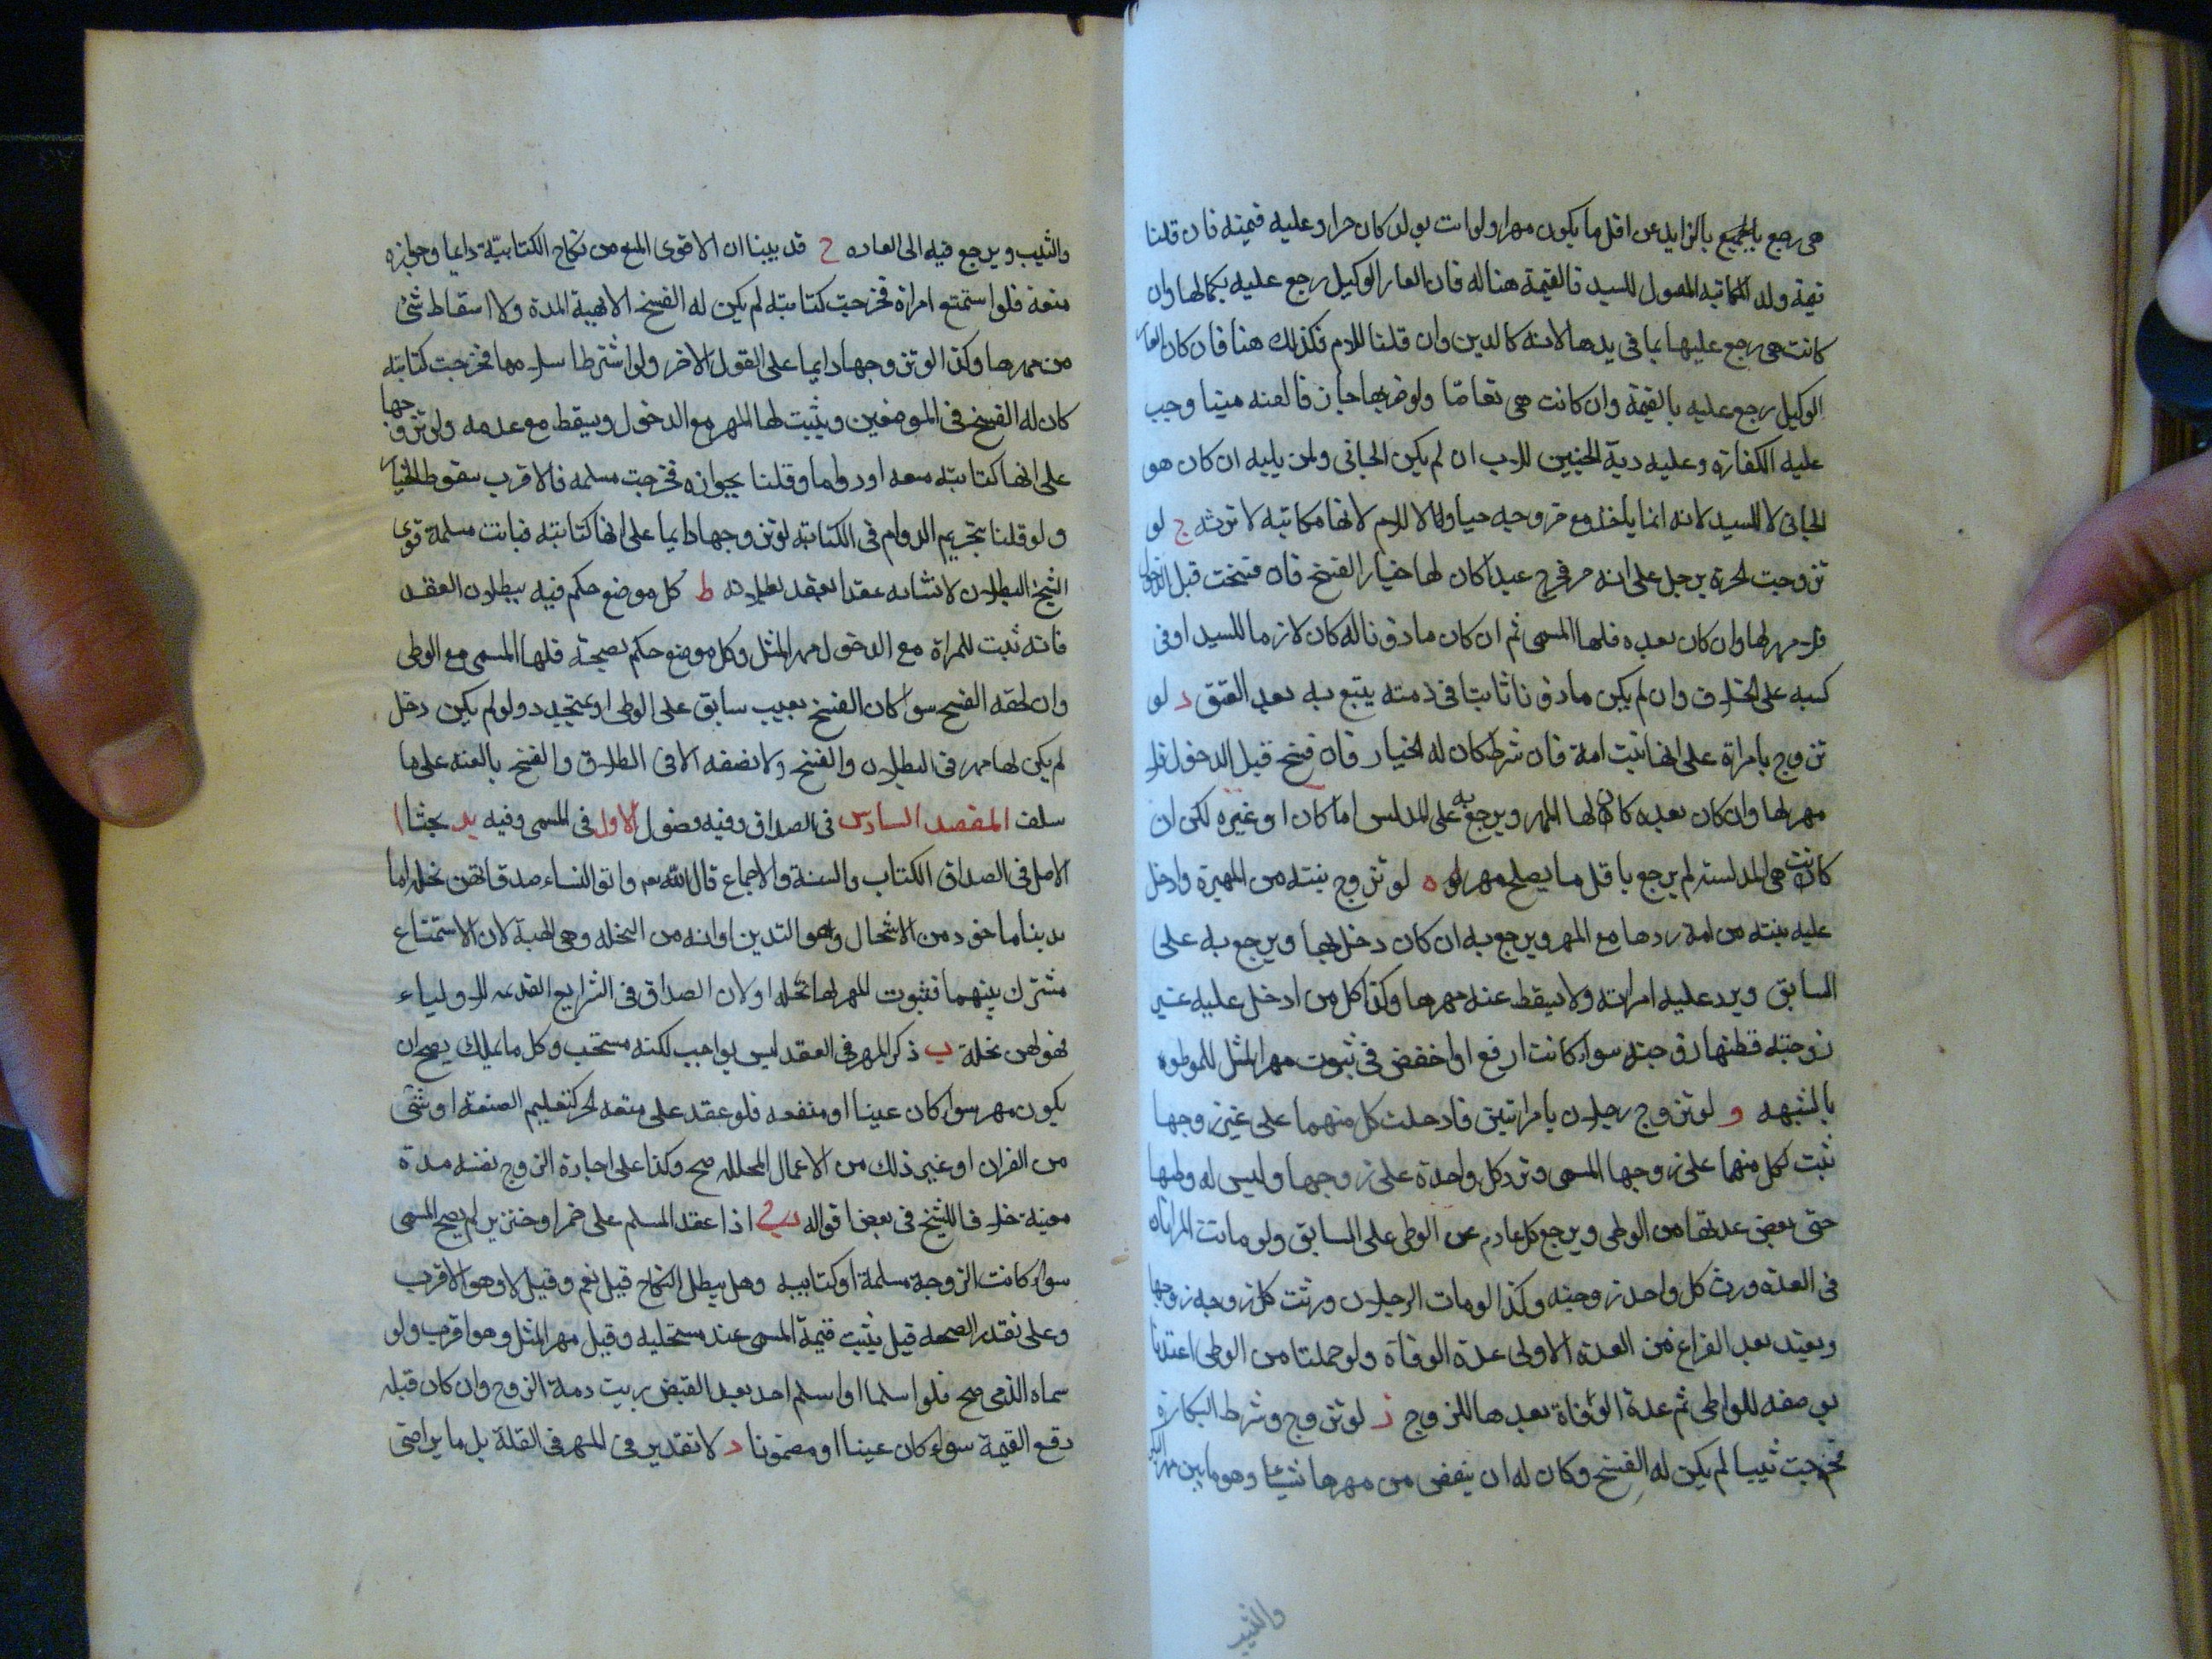 هى رجع بالجميع بالزايد عن اقل ما يكون مهرا ولو اتت بولد كان حرا وعليه قيمته فان قلنا
قيمة ولد المكاتبه المعمول للسيد فالقيمة هنا له فان العار الوكيل رجع عليه بكمالها وان
كانت هى رجع عليها بما فى يدها لانه كالدين وان قلنا للام فكذلك هنا فان كان الغار
الوكيل رجع عليه بالقيمة وان كانت هى تقاصا ولو ضربها جان فالقته ميتا وجب
عليه الكفارة وعليه دية الجنين للاب ان لم يكن الجانى ولمن يليه ان كان هو
الجانى لا للسيد لانه انما ياخذه مع خروجه حيا ولا للام لانها مكاتبه لا ترثه ج لو
تزوجت الحرة برجل على انه حر فخرج عبدا كان لها خيار الفسخ فان فسخت قبل الدخول
فلا مهر لها وان كان بعده فلها المسمى ثم ان كان ماذونا له كان لازما للسيد او فى
كسبه على الخلاف وان لم يكن ماذونا ثابتا فى ذمته يتبع به بعد العتق د لو
تزوج بامراة على انها بنت امة فان شرط كان له الخيار فان فسخ قبل الدخول فلا
مهر لها وان كان بعده كان لها المهر ويرجع به على المدلس اما كان او غيره لكن ان
كانت هى المدلسة لم يرجع باقل ما يصلح مهرا ه لو تزوج بنته من المهيرة وادخل
عليه بنته من امة ردها مع المهر ويرجع به ان كان دخل بها ويرجع به على
السابق ويرد عليه امراته ولا يسقط عنه مهرها وكذا كل من ادخل عليه غير
زوجته فظنها زوجته سواء كانت ارفع او اخفض فى ثبوت مهر المثل للموطوه
بالشبهه و لو تزوج رجلان بامراتين فادخلت كل منهما على غير زوجها
ثبت لكل منهما على زوجها المسمى وترد كل واحدة على زوجها وليس له وطيها
حتى تقضى عدتها من الوطى ويرجع كل غارم عن الوطى على السابق ولو ماتت المراتان
فى العدة ورث كل واحد زوجته وكذا لو مات الرجلان ورثت كل زوجه زوجها
وتعتد بعد الفراغ من العدة الاولى عدة الوفاة ولو حملتا من الوطى اعتدتا
بوضعه للواطى ثم عدة الوفاة بعدها للزوج ز لو تزوج وشرط البكارة
فخرجت ثيبا لم يكن له الفسخ وكان له ان ينقص من مهرها شيئا وهو ما بين مهر البكر
والثيب
والثيب ويرجع فيه الى العاده ح قد بينا ان الاقوى المنع من نكاح الكتابيّة دايما وجوازه
متعة فلو استمتع امراة فخرجت كتابيّه لم يكن له الفسخ الا بهبة المدة ولا اسقاط شئ
من مهرها وكذا لو تزوجها دايما على القول الاخر ولو اشترط اسلامها فخرجت كتابيّه
كان له الفسخ فى الموضعين ويثبت لها المهر مع الدخول ويسقط مع عدمه ولو تزوجها
على انها كتابيّه متعه او دواما وقلنا بجوازه فخرجت مسلمه فالاقرب سقوط الخيار
ولو قلنا بتحريم الدوام فى الكتابيّه لو تزوجها دايما على انها كتابيّه فبانت مسلمة قوى
الشيخ البطلان لانشائه عقدا يعتقد بطلانه ط كل موضع حكم فيه ببطلان العقد
فانه ثبت للمراة مع الدخول مهر المثل وكل موضع حكم بصحته فلها المسمى مع الوطى
وان لحقه الفسخ سوا كان الفسخ بعيب سابق على الوطى او متجدد ولو لم يكن دخل
لم يكن لها مهر فى البطلان والفسخ ولا نصفه الا فى الطلاق والفسخ بالعنه على ما
سلف المقصد السادس فى الصداق وفيه فصول الاول فى المسمى وفيه يد بحثا ا
الاصل فى الصداق الكتاب والسنة والاجماع قال الله تعـ واتو النساء صدقاتهن نحله اما
تدينا ماخوذ من الانتحال وهو التدين او انه من النحله وهى الهبة لان الاستمتاع
مشترك بينهما فثبوت المهر لها نحله او لان الصداق فى الشرايع القديمه للاولياء
فهو لهن نحلة ب ذكر المهر فى العقد ليس بواجب لكنه مستحب وكل ما يملك يصح ان
يكون مهر سواء كان عينا او منفعه فلو عقد على منفعه الحر كتعليم الصنعة او شئى
من القران او غير ذلك من الاعمال المحلله صح وكذا على اجارة الزوج نفسه مدة
معينة خلافا للشيخ فى بعض اقواله ج اذا عقد المسلم على خمر او خنزير لم يصح المسمى
سواء كانت الزوجة مسلمة او كتابيه وهل يبطل النكاح قيل نعم وقيل لا وهو الاقرب
وعلى تقدير الصحه قيل يثبت قيمة المسمى عند مستحليه وقيل مهر المثل وهو اقرب ولو
سماه الذمى صح فلو اسلما او اسلم احد بعد القبض بريت ذمة الزوج وان كان قبله
دفع القيمة سواء كان عينا او مضمونا د لا تقدير فى المهر فى القلة بل ما يراضى